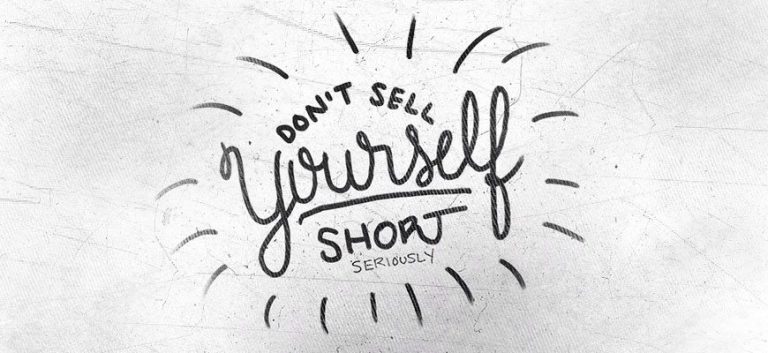 DON'T SELL
yourself
SHORT
SERIOUSLY